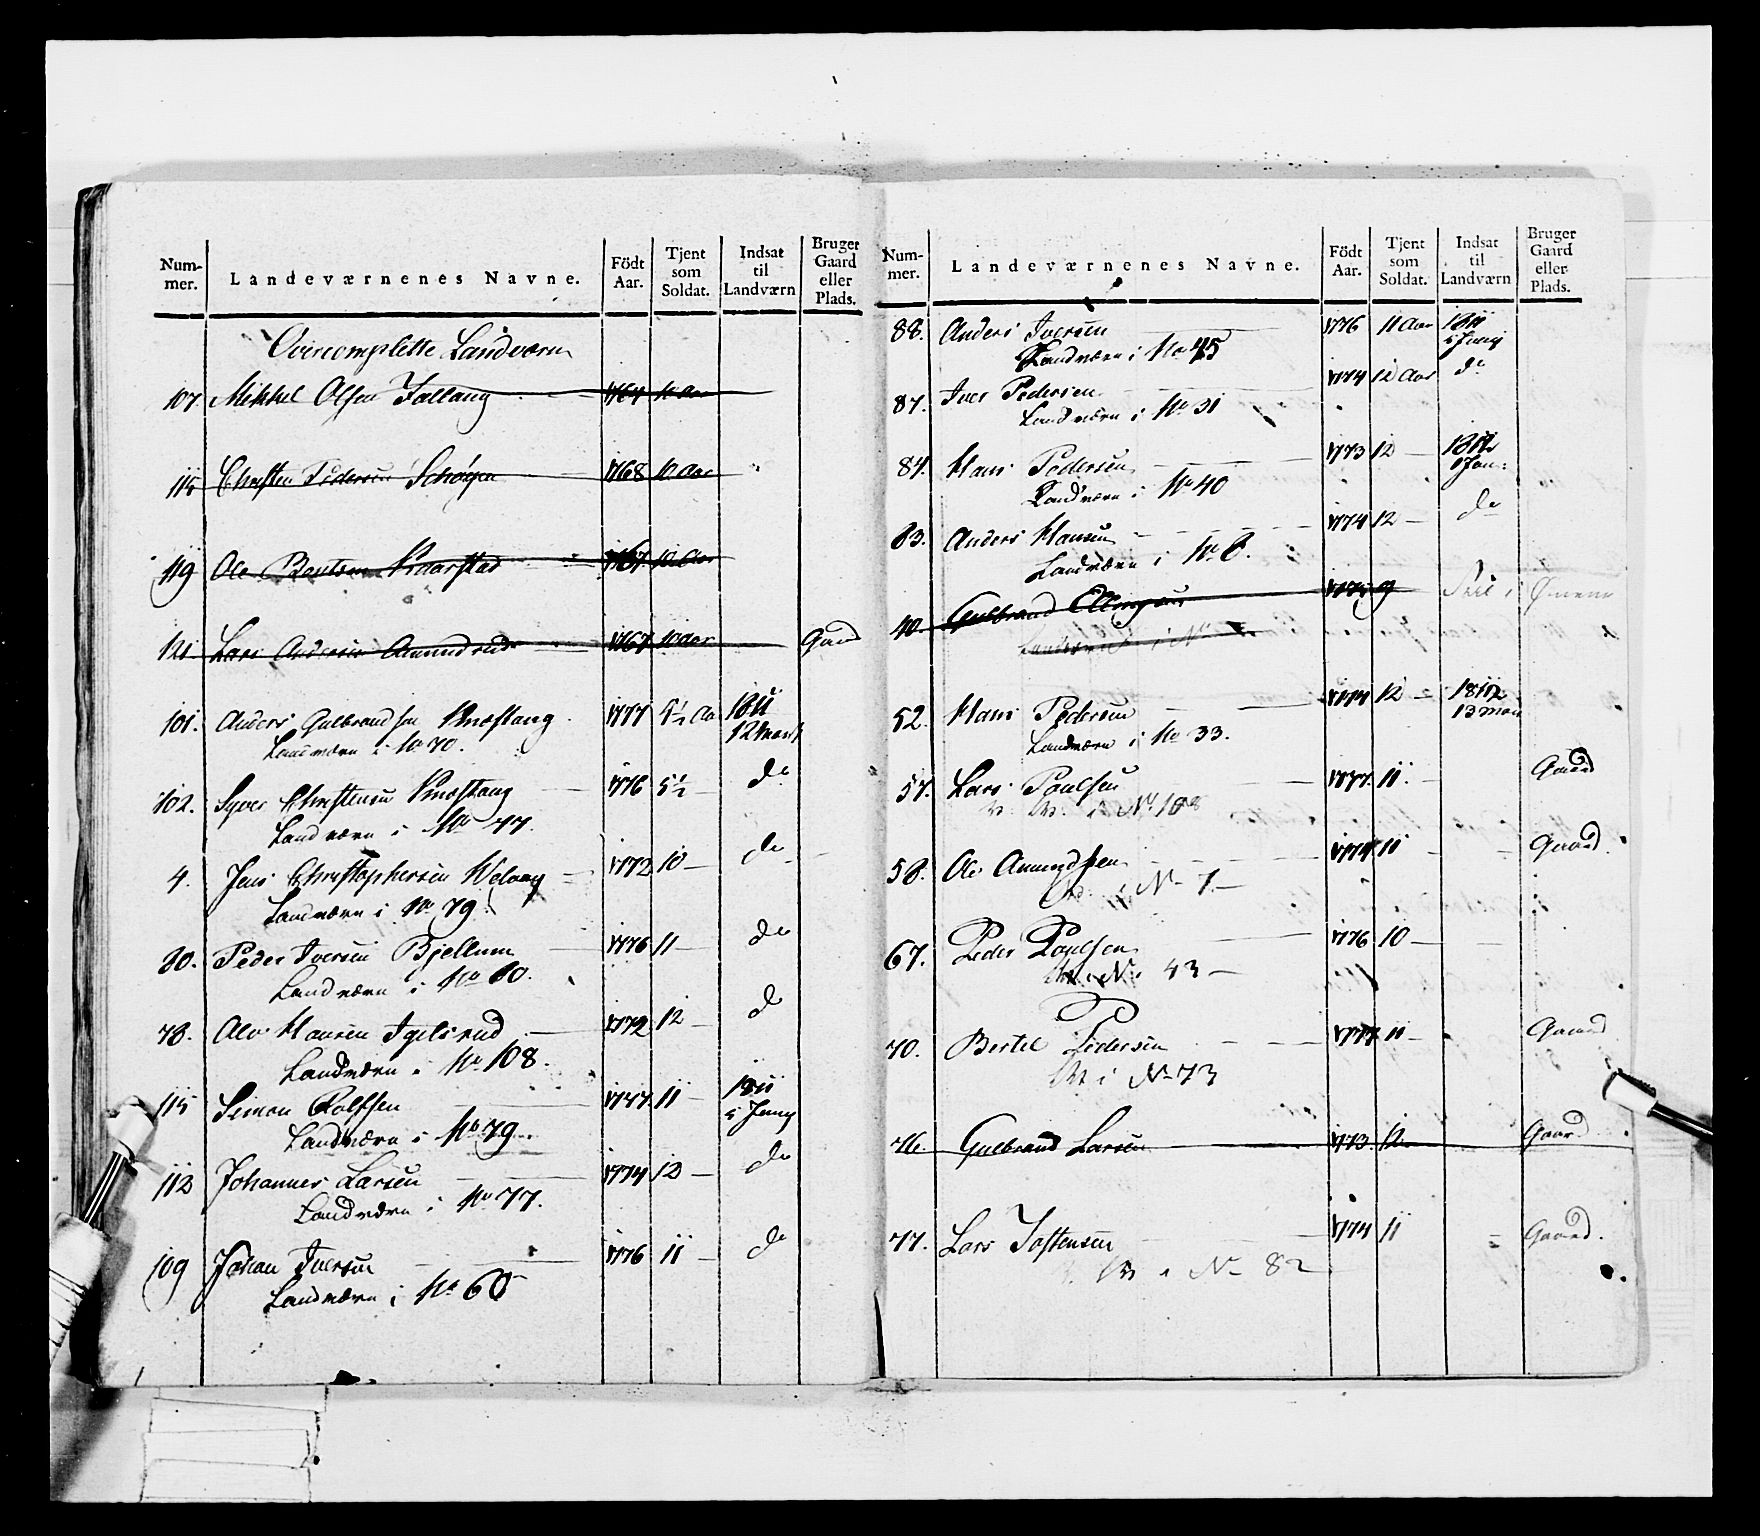 Num-
mer.
Landeværnenes Navne.
Födt
Aar.
Tjent
som
Soldat.
Indsat
til
Landværn
Bruger
Gaard
eller
Plads.
Overcomplette Landværn
107. Mikkel Olsen 1767 10 Aar
115 Christen Pedersen 1768 10 Aar
119 Ole 1767 10 Aar
121. Lars Andersen 1767 10 aar Gaard
101. Anders Gulbrandsen 1777 5½ Aar 1811
12 Marti
Landværn i No 70.
102. Syver Christensen 1776 5½ do
Landværn i No 77.
4. Jens Christophersen 1772 10 — do
Landværn i No 79.
30. Peder Iversen Bjellum 1776 11 — do
Landværn i No 80.
78. Ole Hansen Igelsrud — 1772 12 — do
Landværn i No 108.
115 Simon Rolfsen 1777 11 — 1811
5 Juny
Landværn i No 79.
112 Johannes Larsen 1774 12 — do
Landværn i No 77.
109 Johan Iversen 1776 11 — do
Landværn i No 60
Num-
mer.
Landeværnenes Navne.
Födt
Aar.
Tjent
som
Soldat.
Indsat
til
Landværn
Bruger
Gaard
eller
Plads.
88. Anders Iversen 1776 11 Aar 1811
5 Juny
Landværn i No 45
87. Iver Pedersen 1774 12 Aar do
Landværn i No 31
84. Hans Pedersen 1773 12 — 1812
Jan:
Landværn i No 40
83. Anders Hansen 1774 12 — do
Landværn i No 8.
40. Gulbrand Ellingsen 9
52. Hans Pedersen 1774 12 1812
13 Mars
Landværn i No 33.
57. Lars Poulsen 1777. 11. Gaard
i No 108
58. Ole Amundsen 1774 11 Gaard.
i No 7. —
67. Peder Poulsen 1776 10 —
i No 43 —
70. Bertel Pedersen 1777 11 — Gaard
i No 73
76. Gulbrand Larsen 1773. 12 Gaard
77. Lars Jostensen 1774 11 Gaard.
i No 82